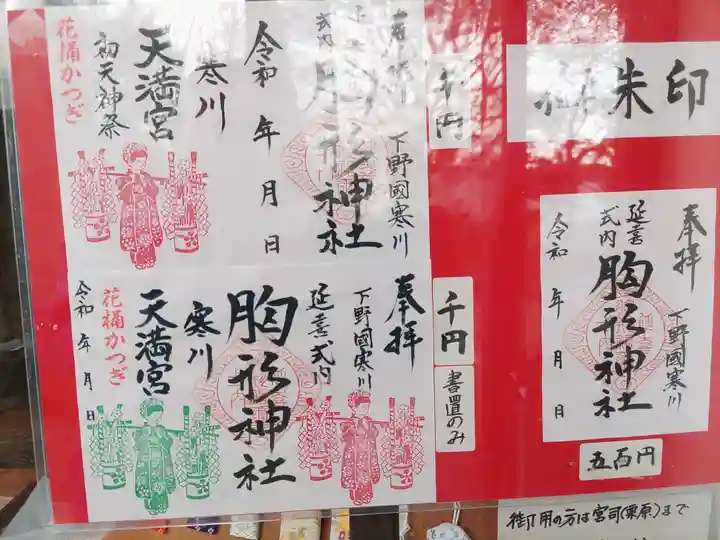 御朱印
千円
奉拝
下野國寒川
延喜
式内
胸形神社
令和 年 月 日
寒川
天満宮
初天神祭
花桶かつぎ
千円
書置のみ
奉拝
下野國寒川
延喜式内
胸形神社
寒川
天満宮
花桶かつぎ
令和 年 月 日
奉拝
下野國寒川
延喜
式内
胸形神社
令和 年 月 日
五百円
御用の方は宮司(栗原)まで